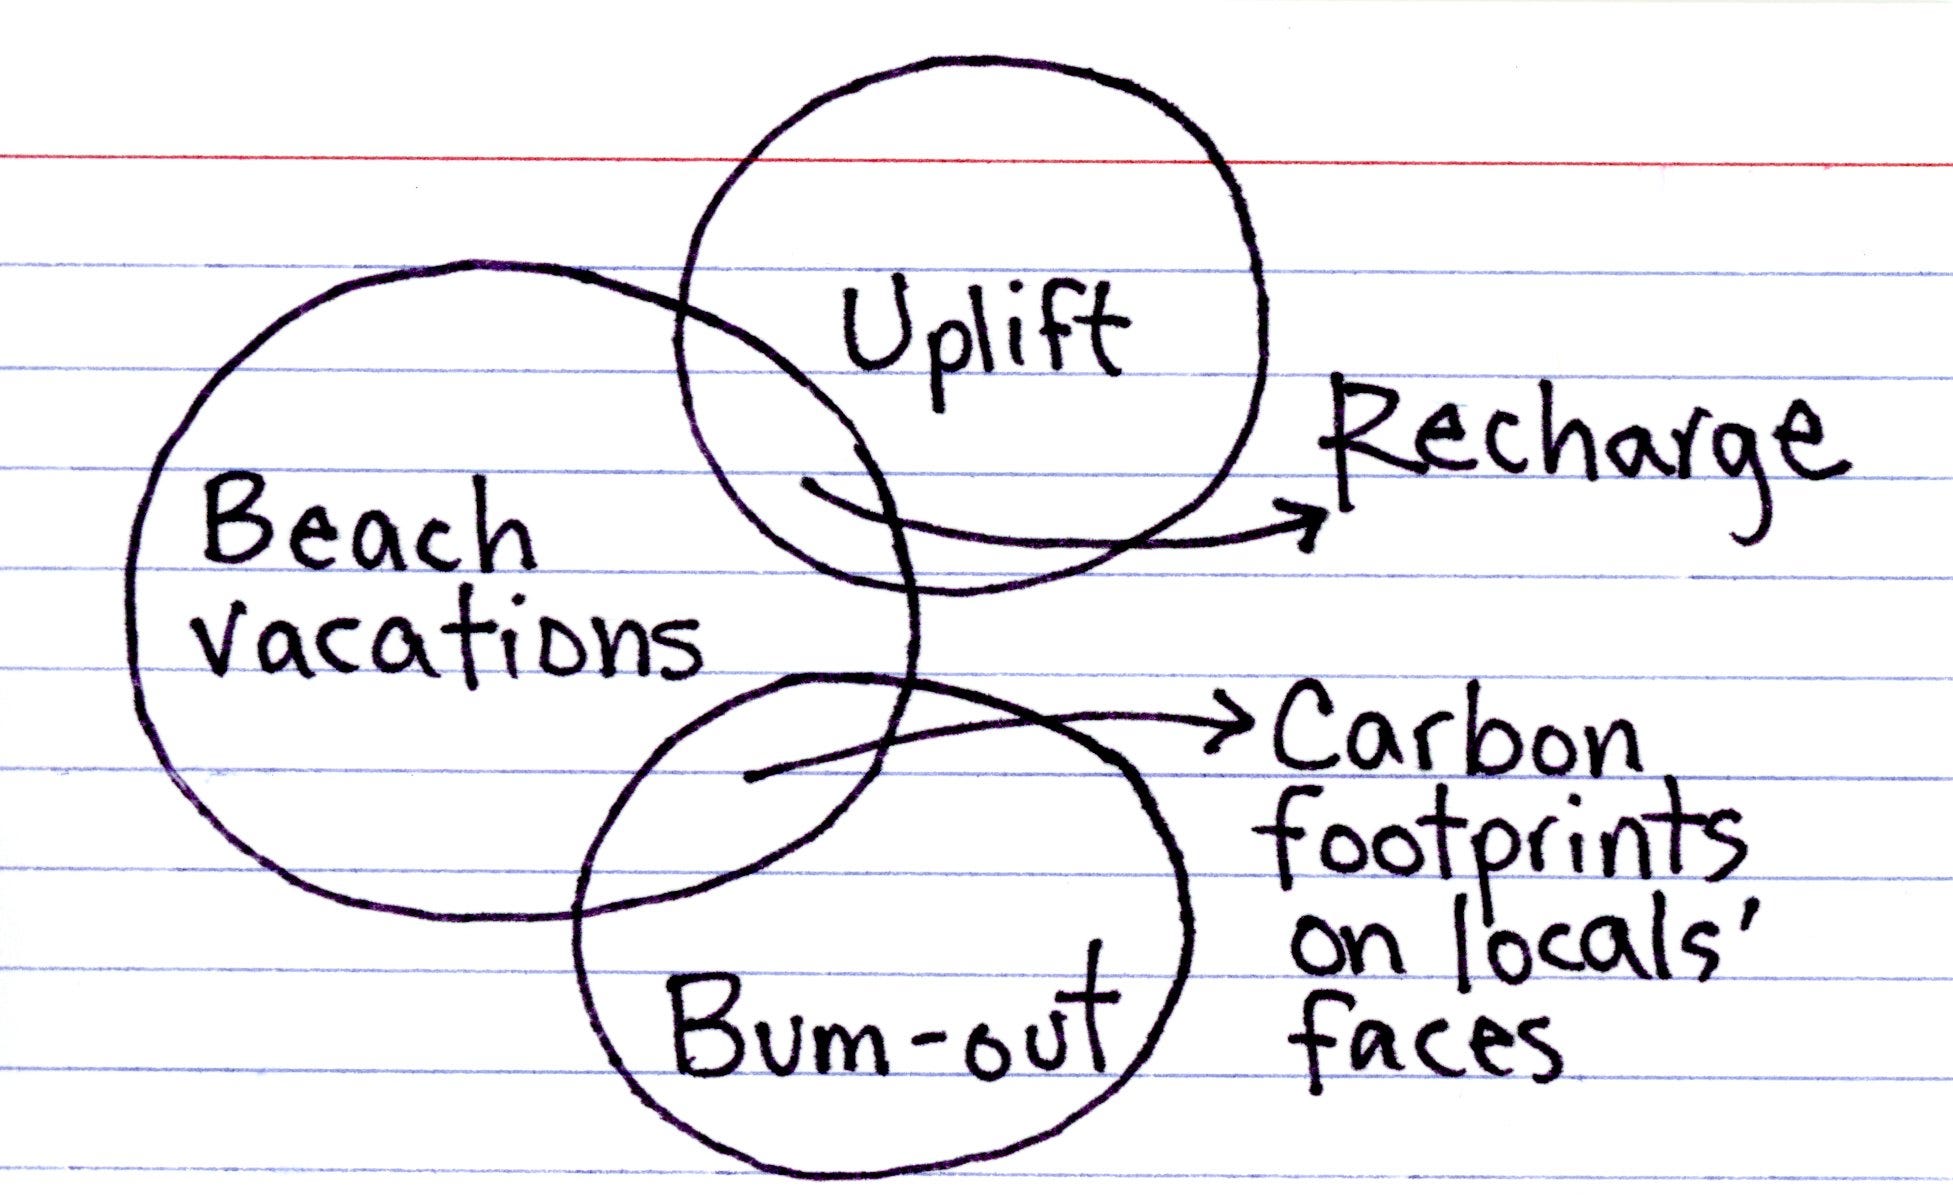 Uplift
Recharge
Beach
vacations
Carbon
footprints
on locals'
faces
Bum-out